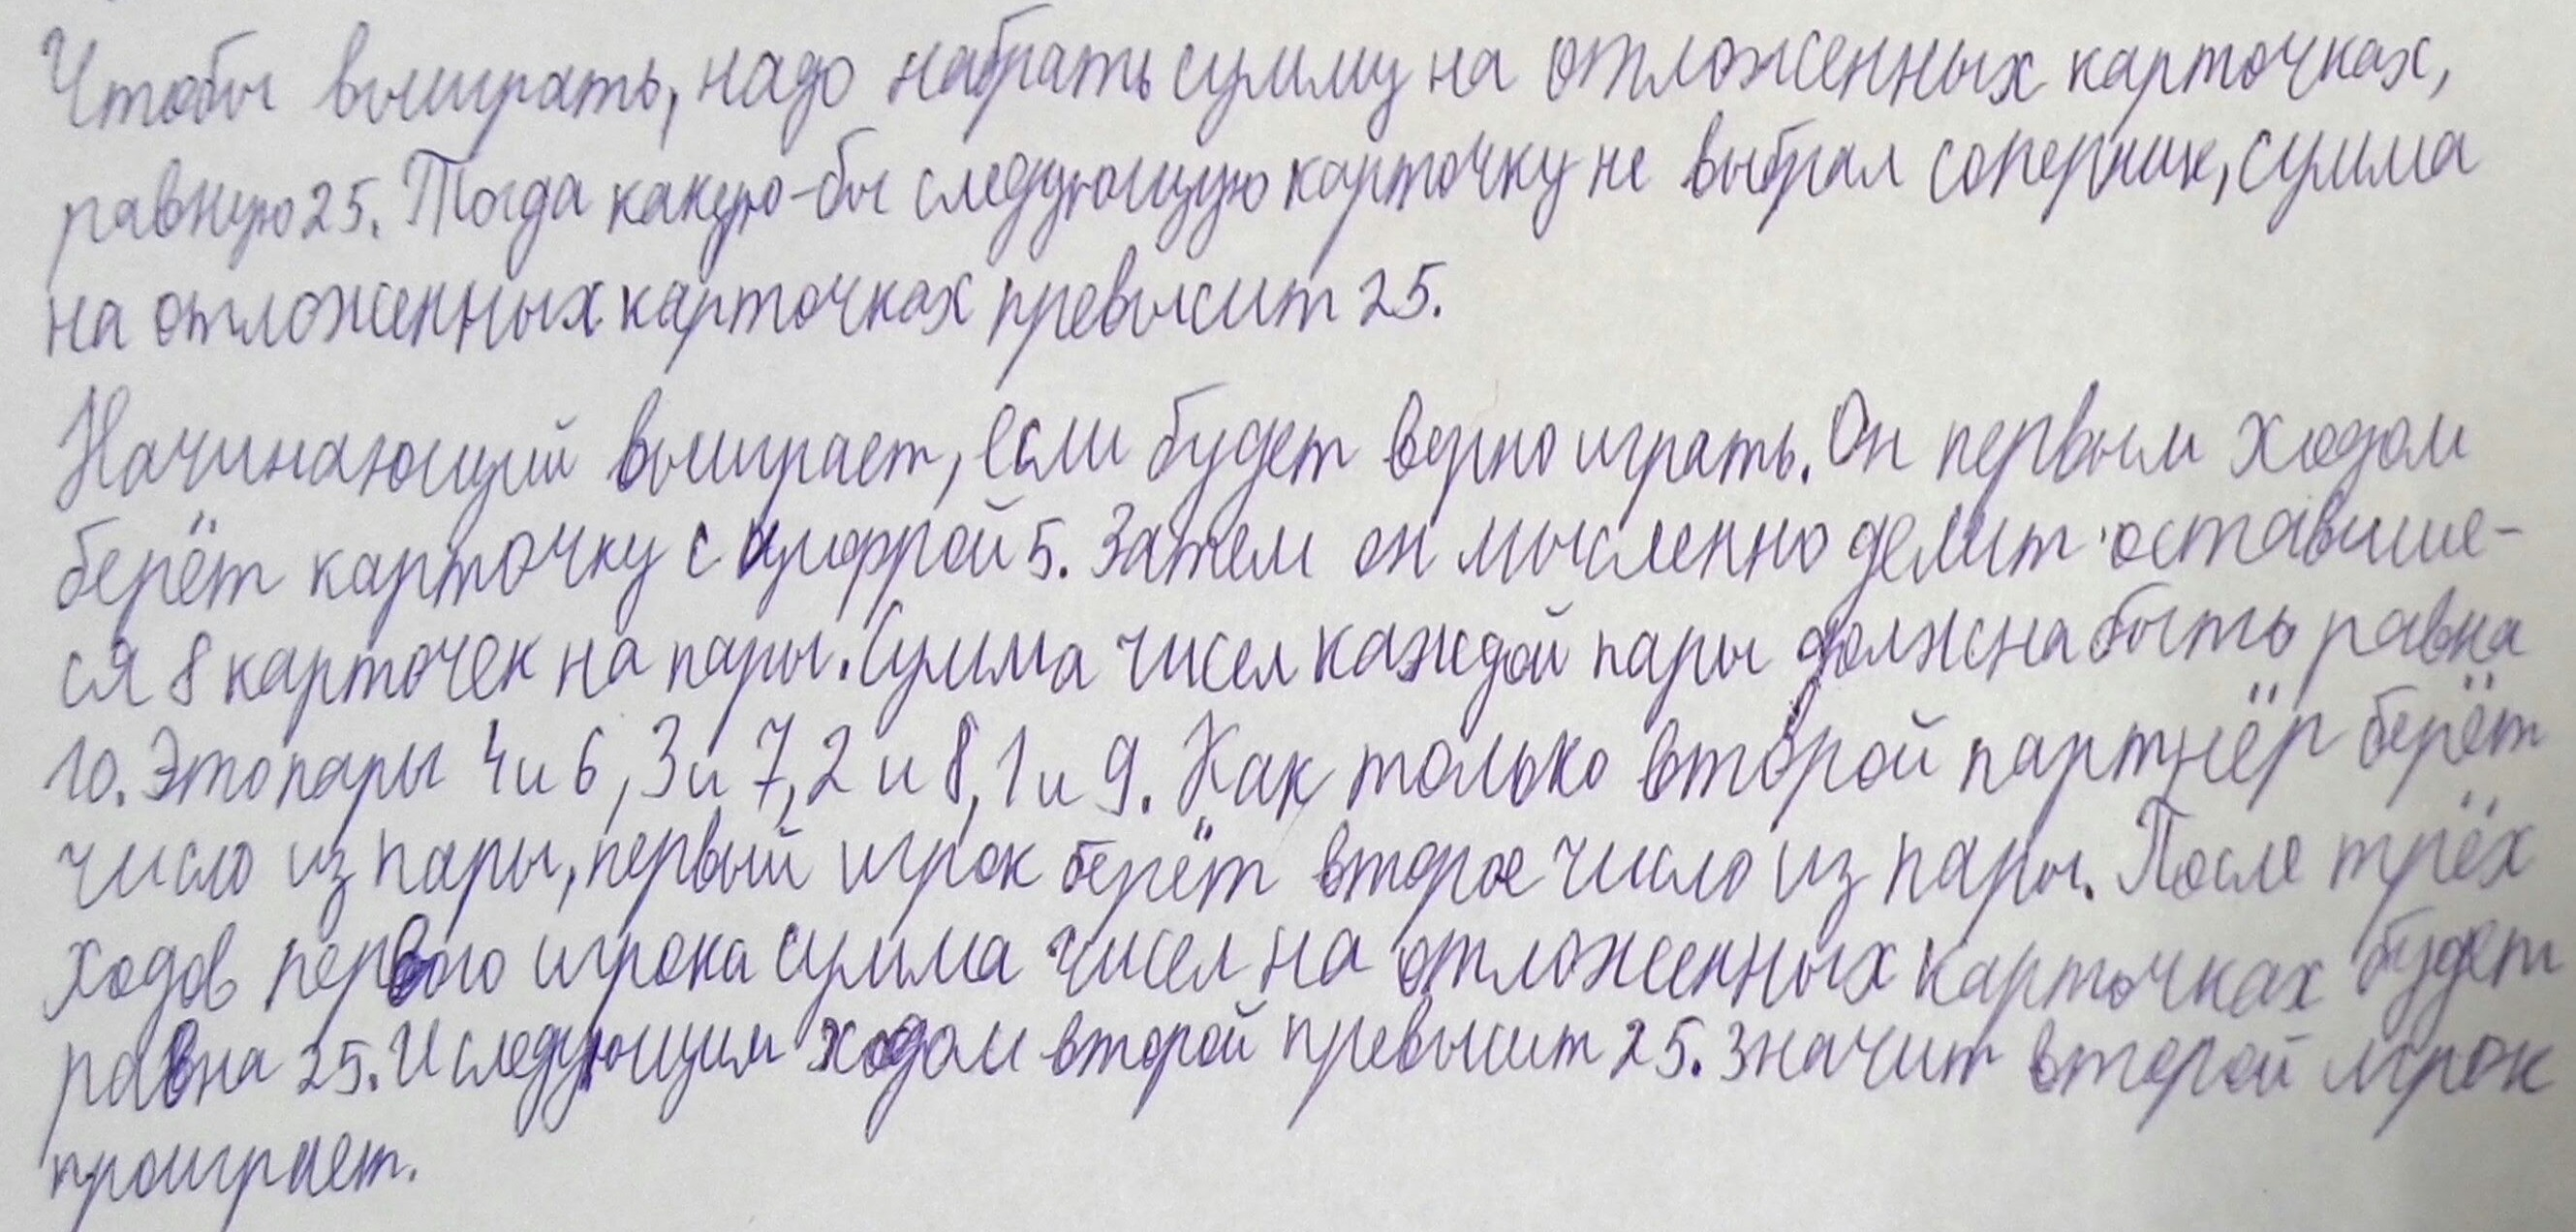 Чтобы выиграть, надо набрать сумму на отложенных карточках,
равную 25. Тогда какую-бы следующую карточку не выбрал соперник, сумма
на отложенных карточках превысит 25.
Начинающий выиграет, если будет верно играть. Он первым ходом
берёт карточку с цифрой 5. Затем он мысленно делит оставшие-
ся 8 карточек на пары. Сумма чисел каждой пары должна быть равна
10. Это пары 4 и 6, 3 и 7, 2 и 8, 1 и 9. Как только второй партнёр берёт
число из пары, первый игрок берёт второе число из пары. После трёх
ходов первого игрока сумма чисел на отложенных карточках будет
равна 25. И следующим ходом второй превысит 25. Значит второй игрок
проиграет.